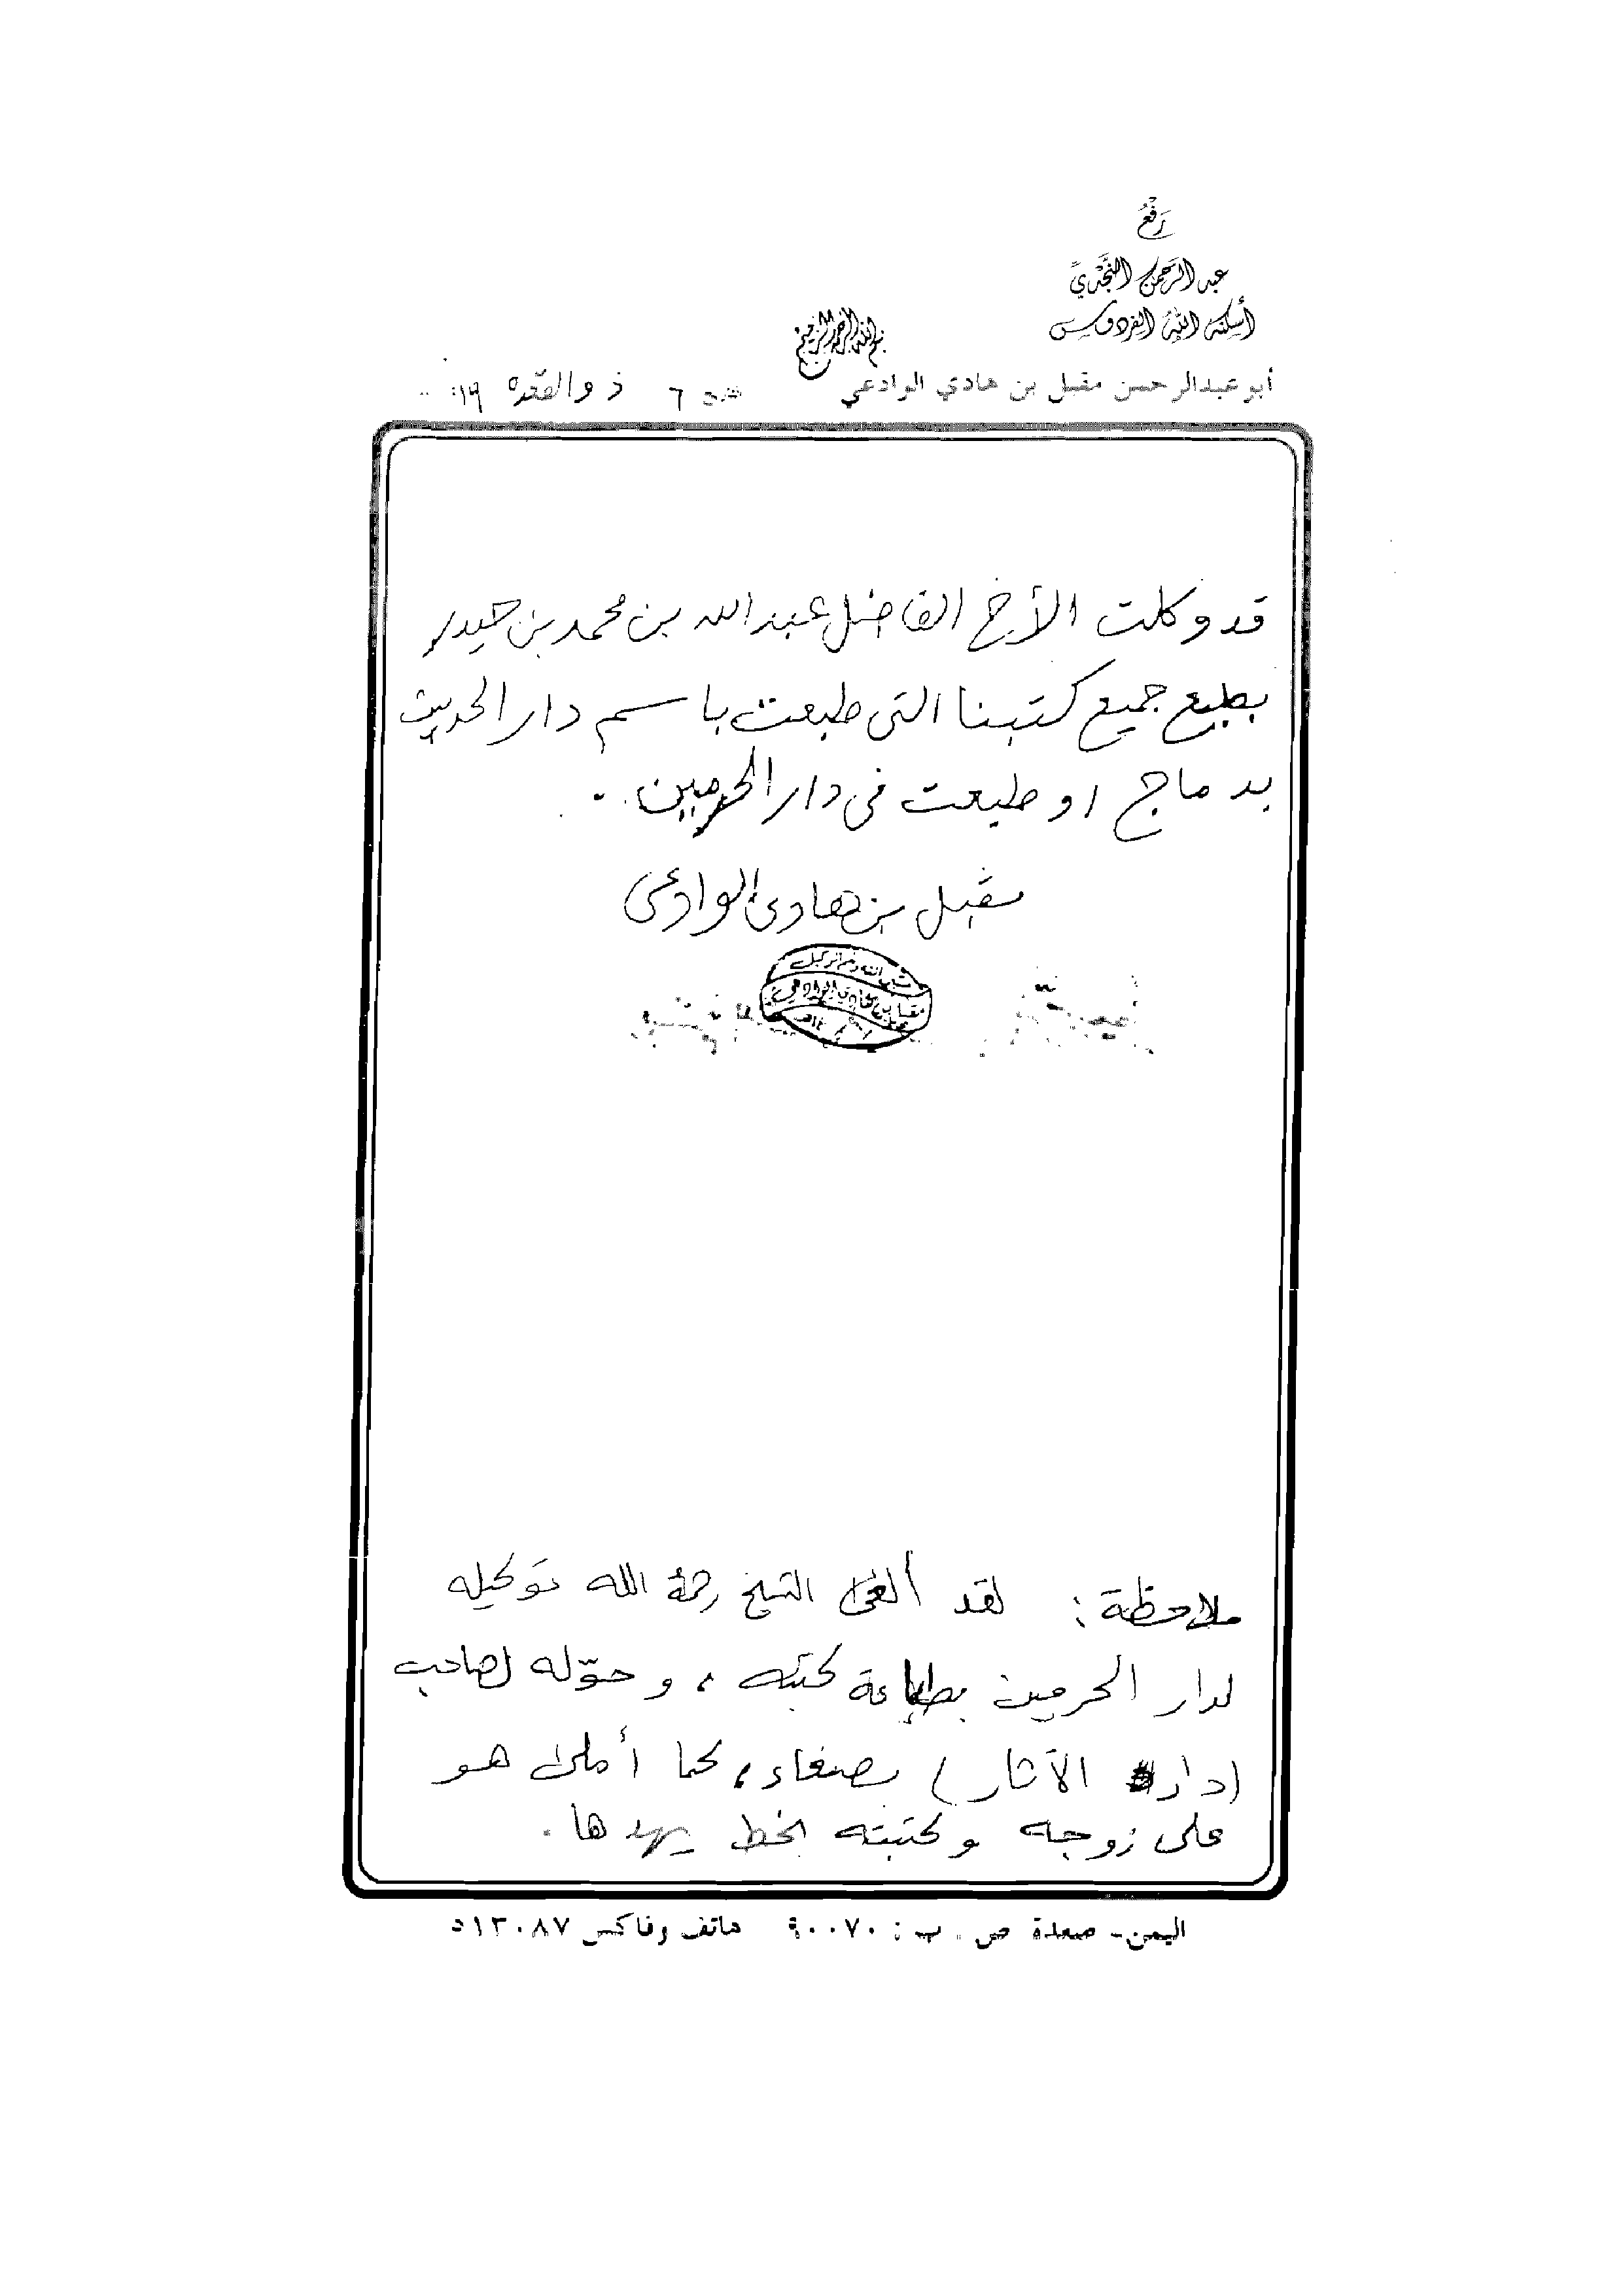 رَفْعُ
عبد الرَّحمن النَّجْدِيِّ
أسكنه الله الفردوس
بسم الله الرحمن الرحيم
أبو عبدالرحمن مقبل بن هادي الوادعي ٦ ذو القعدة ١٩
قد وكلت الأخ الفاضل عبدالله بن محمد بن حيدر
بطبع جميع كتبنا التي طبعت باسم دار الحديث
بدماج او طبعت في دار الحرمين .
مقبل بن هادي الوادعي
مقبل بن هادي الوادعي
ملاحظة : لقد ألغى الشيخ رحمة الله توكيله
لدار الحرمين بطباعة كتبه ، و حوّله لصاحب
(دار الآثار) بصنعاء ، كما أملى هو
على زوجه و كتبته بخط يدها .
اليمن - صعدة ص . ب : ٩٠٠٧٠ هاتف وفاكس ٥١٣٠٨٧